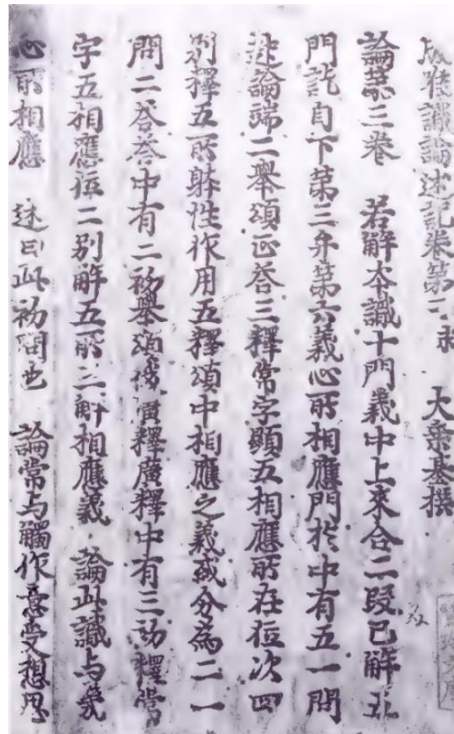 成唯識論述記卷第三末 大乘基撰
論第三卷 若解本識十門義中上來合二段已解五
門訖自下第三弁第六義心所相應門於中有五一問
起論端二舉頌正答三釋常字顯五相應所在位次四
別釋五所躰性作用五釋頌中相應之義或分為二一
問二答答中有二初舉頌後釋廣釋中有三初釋常
字五相應位二別解五所三解相應義 論此識与幾
心所相應 述曰此初問也 論常与觸作意受想思